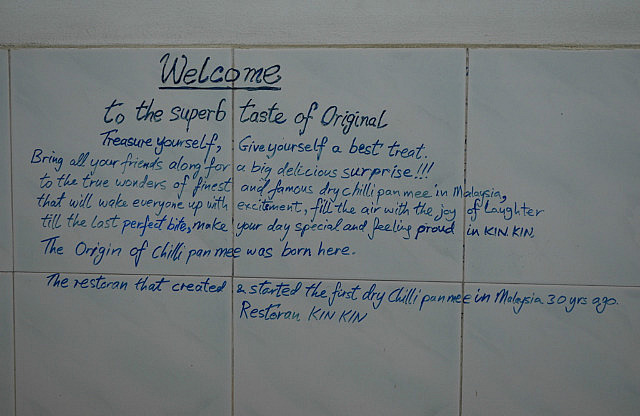 Welcome
to the superb taste of Original
Treasure yourself, Give yourself a best treat.
Bring all your friends along for a big delicious surprise!!!
to the true wonders of finest and famous dry chilli pan mee in Malaysia,
that will wake everyone up with excitment, fill the air with the joy of laughter
till the last perfect bite, make your day special and feeling proud in KIN KIN.
The Origin of Chilli pan mee was born here.
The restoran that created & started the first dry Chilli pan mee in Malaysia 30 yrs ago.
Restoran KIN KIN